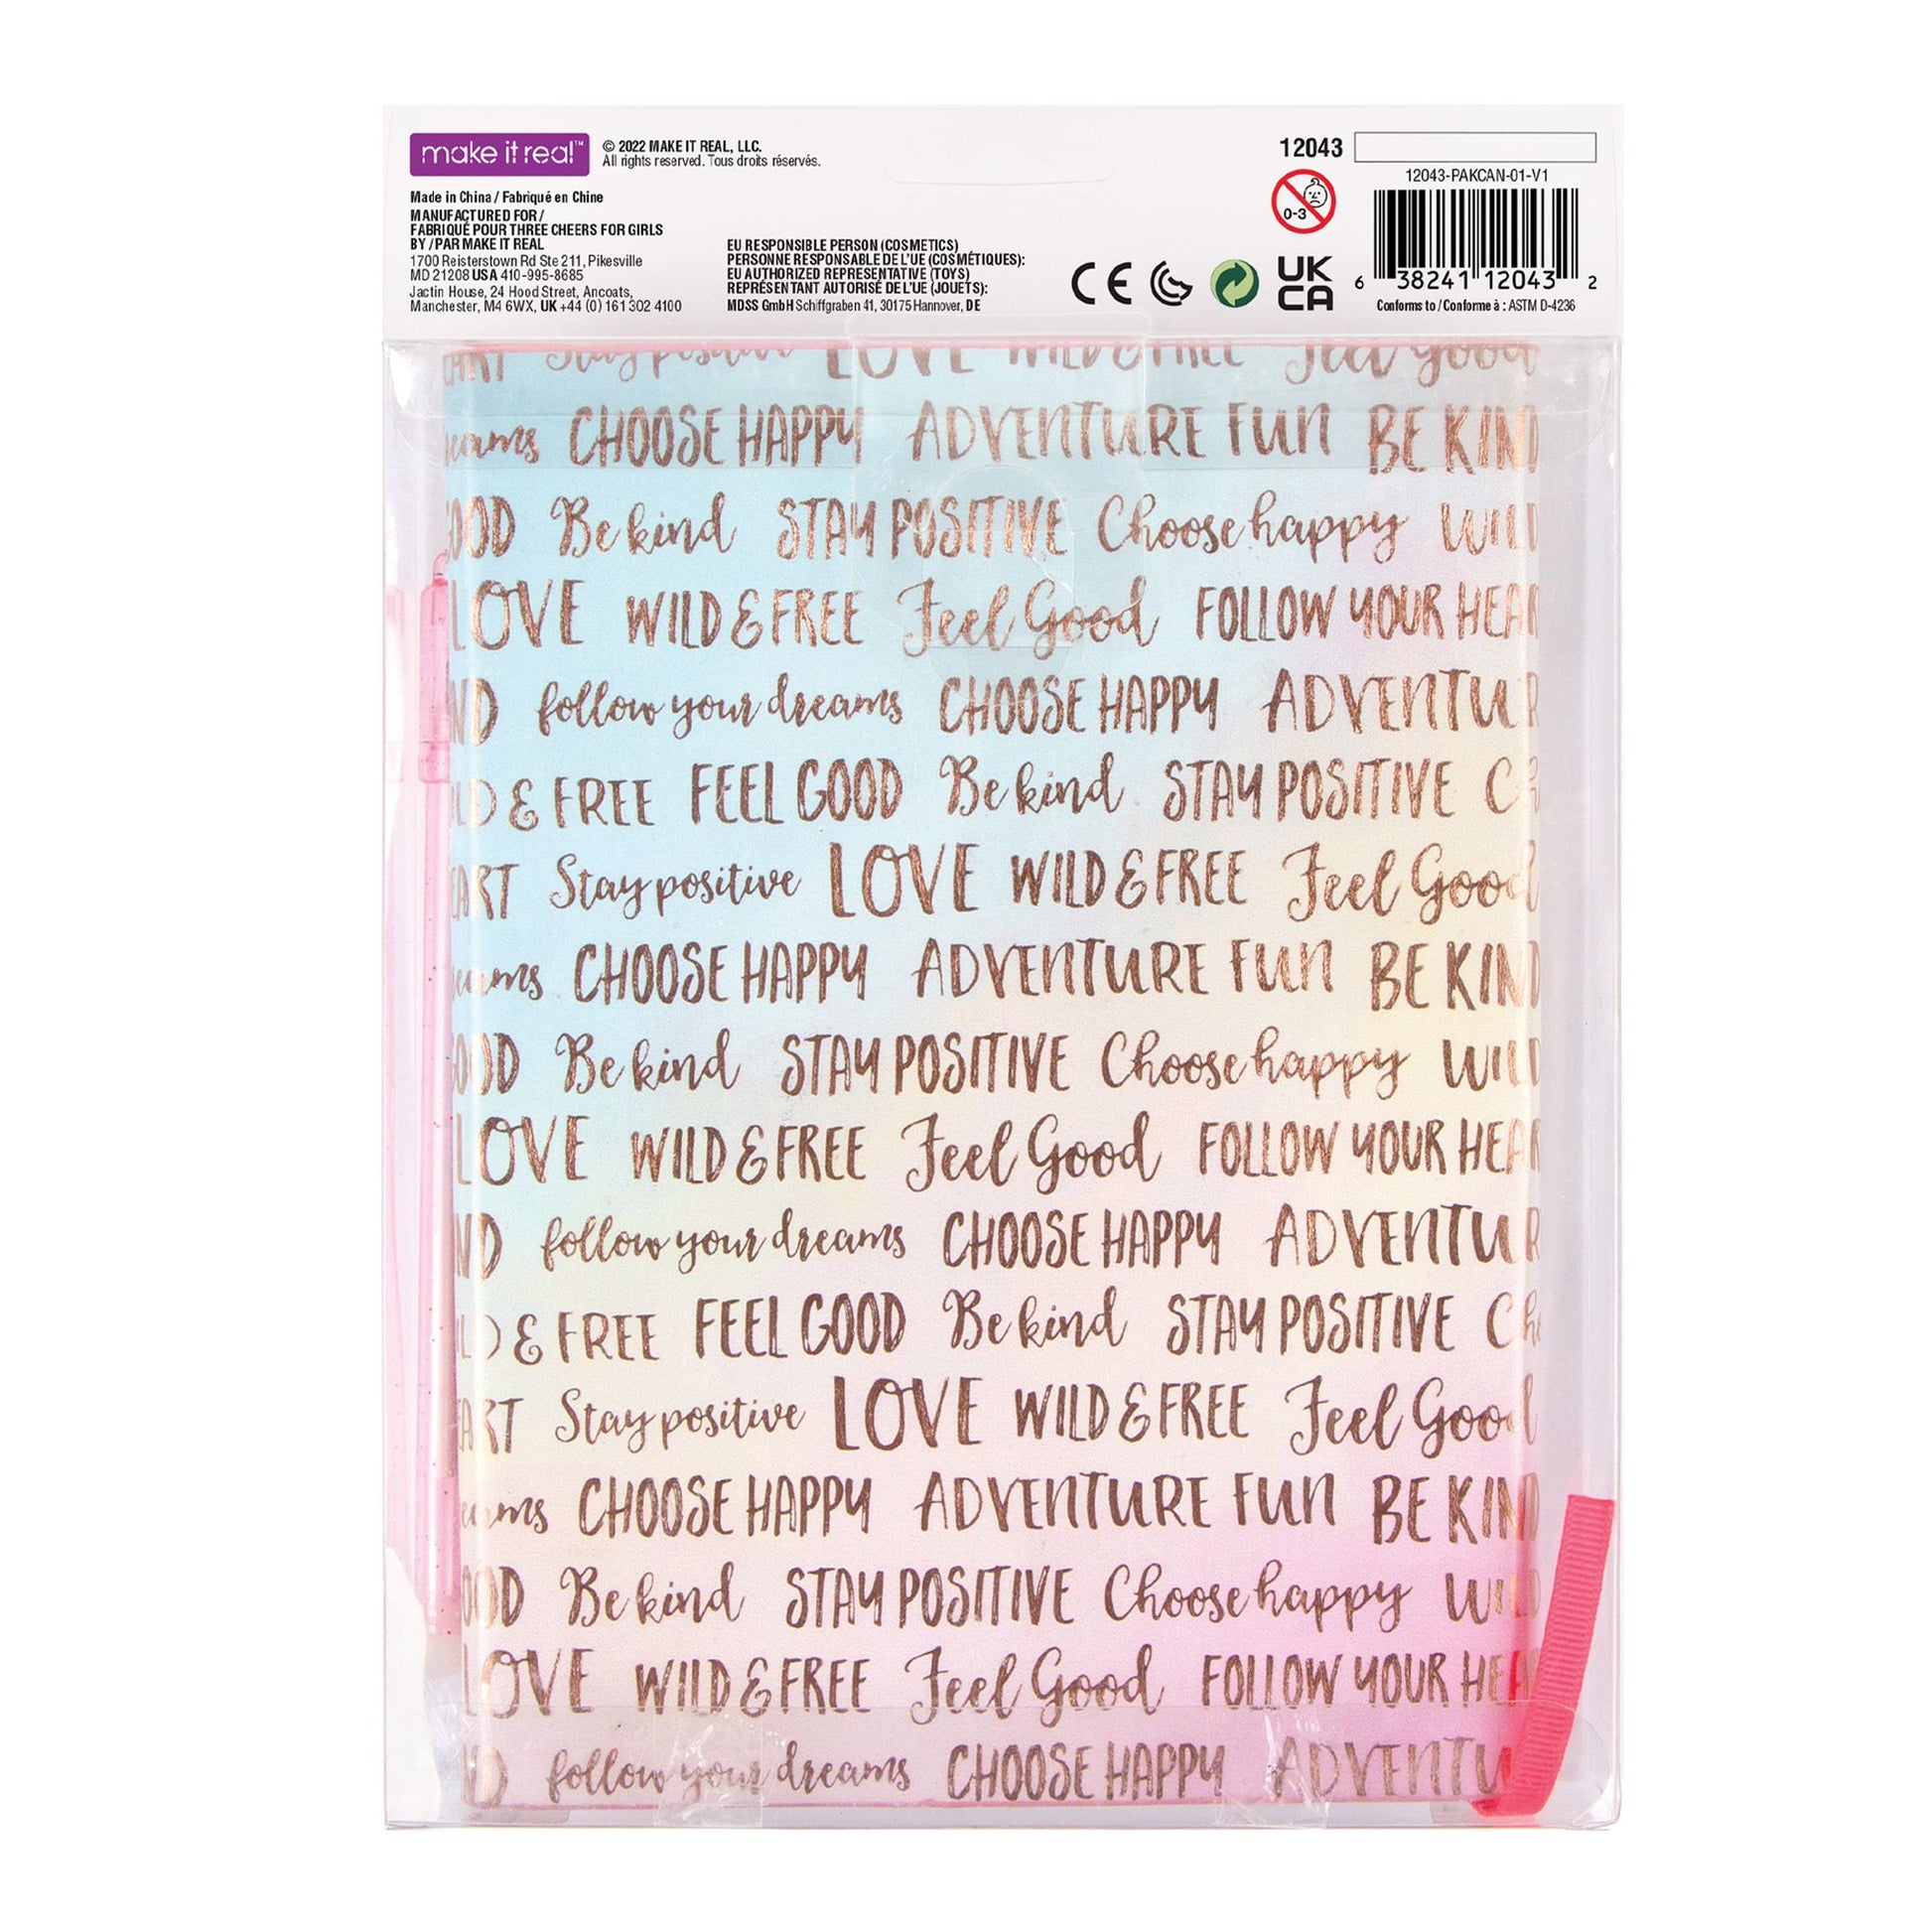 make it real™
© 2022 MAKE IT REAL, LLC.
All rights reserved. Tous droits réservés.
Made in China / Fabriqué en Chine
MANUFACTURED FOR /
FABRIQUÉ POUR THREE CHEERS FOR GIRLS
BY / PAR MAKE IT REAL
1700 Reisterstown Rd Ste 211, Pikesville
MD 21208 USA 410-995-8685
Jactin House, 24 Hood Street, Ancoats,
Manchester, M4 6WX, UK +44 (0) 161 302 4100
EU RESPONSIBLE PERSON (COSMETICS)
PERSONNE RESPONSABLE DE L'UE (COSMÉTIQUES):
EU AUTHORIZED REPRESENTATIVE (TOYS)
REPRÉSENTANT AUTORISÉ DE L'UE (JOUETS):
MDSS GmbH Schiffgraben 41, 30175 Hannover, DE
CE
UK
CA
0-3
12043
12043-PAKCAN-01-V1
6 38241 12043 2
Conforms to / Conforme à : ASTM D-4236
ART Stay positive LOVE WILD & FREE Feel Good
eams CHOOSE HAPPY ADVENTURE FUN BE KIND
OOD Be kind STAY POSITIVE Choose happy WILD
LOVE WILD & FREE Feel Good FOLLOW YOUR HEAR
ND follow your dreams CHOOSE HAPPY ADVENTUR
LD & FREE FEEL GOOD Be kind STAY POSITIVE Ch
EART Stay positive LOVE WILD & FREE Feel Good
eams CHOOSE HAPPY ADVENTURE FUN BE KIND
OOD Be kind STAY POSITIVE Choose happy WILD
LOVE WILD & FREE Feel Good FOLLOW YOUR HEAR
ND follow your dreams CHOOSE HAPPY ADVENTUR
LD & FREE FEEL GOOD Be kind STAY POSITIVE Cho
EART Stay positive LOVE WILD & FREE Feel Good
eams CHOOSE HAPPY ADVENTURE FUN BE KIND
OOD Be kind STAY POSITIVE Choose happy WILD
LOVE WILD & FREE Feel Good FOLLOW YOUR HEA
ND follow your dreams CHOOSE HAPPY ADVENTU